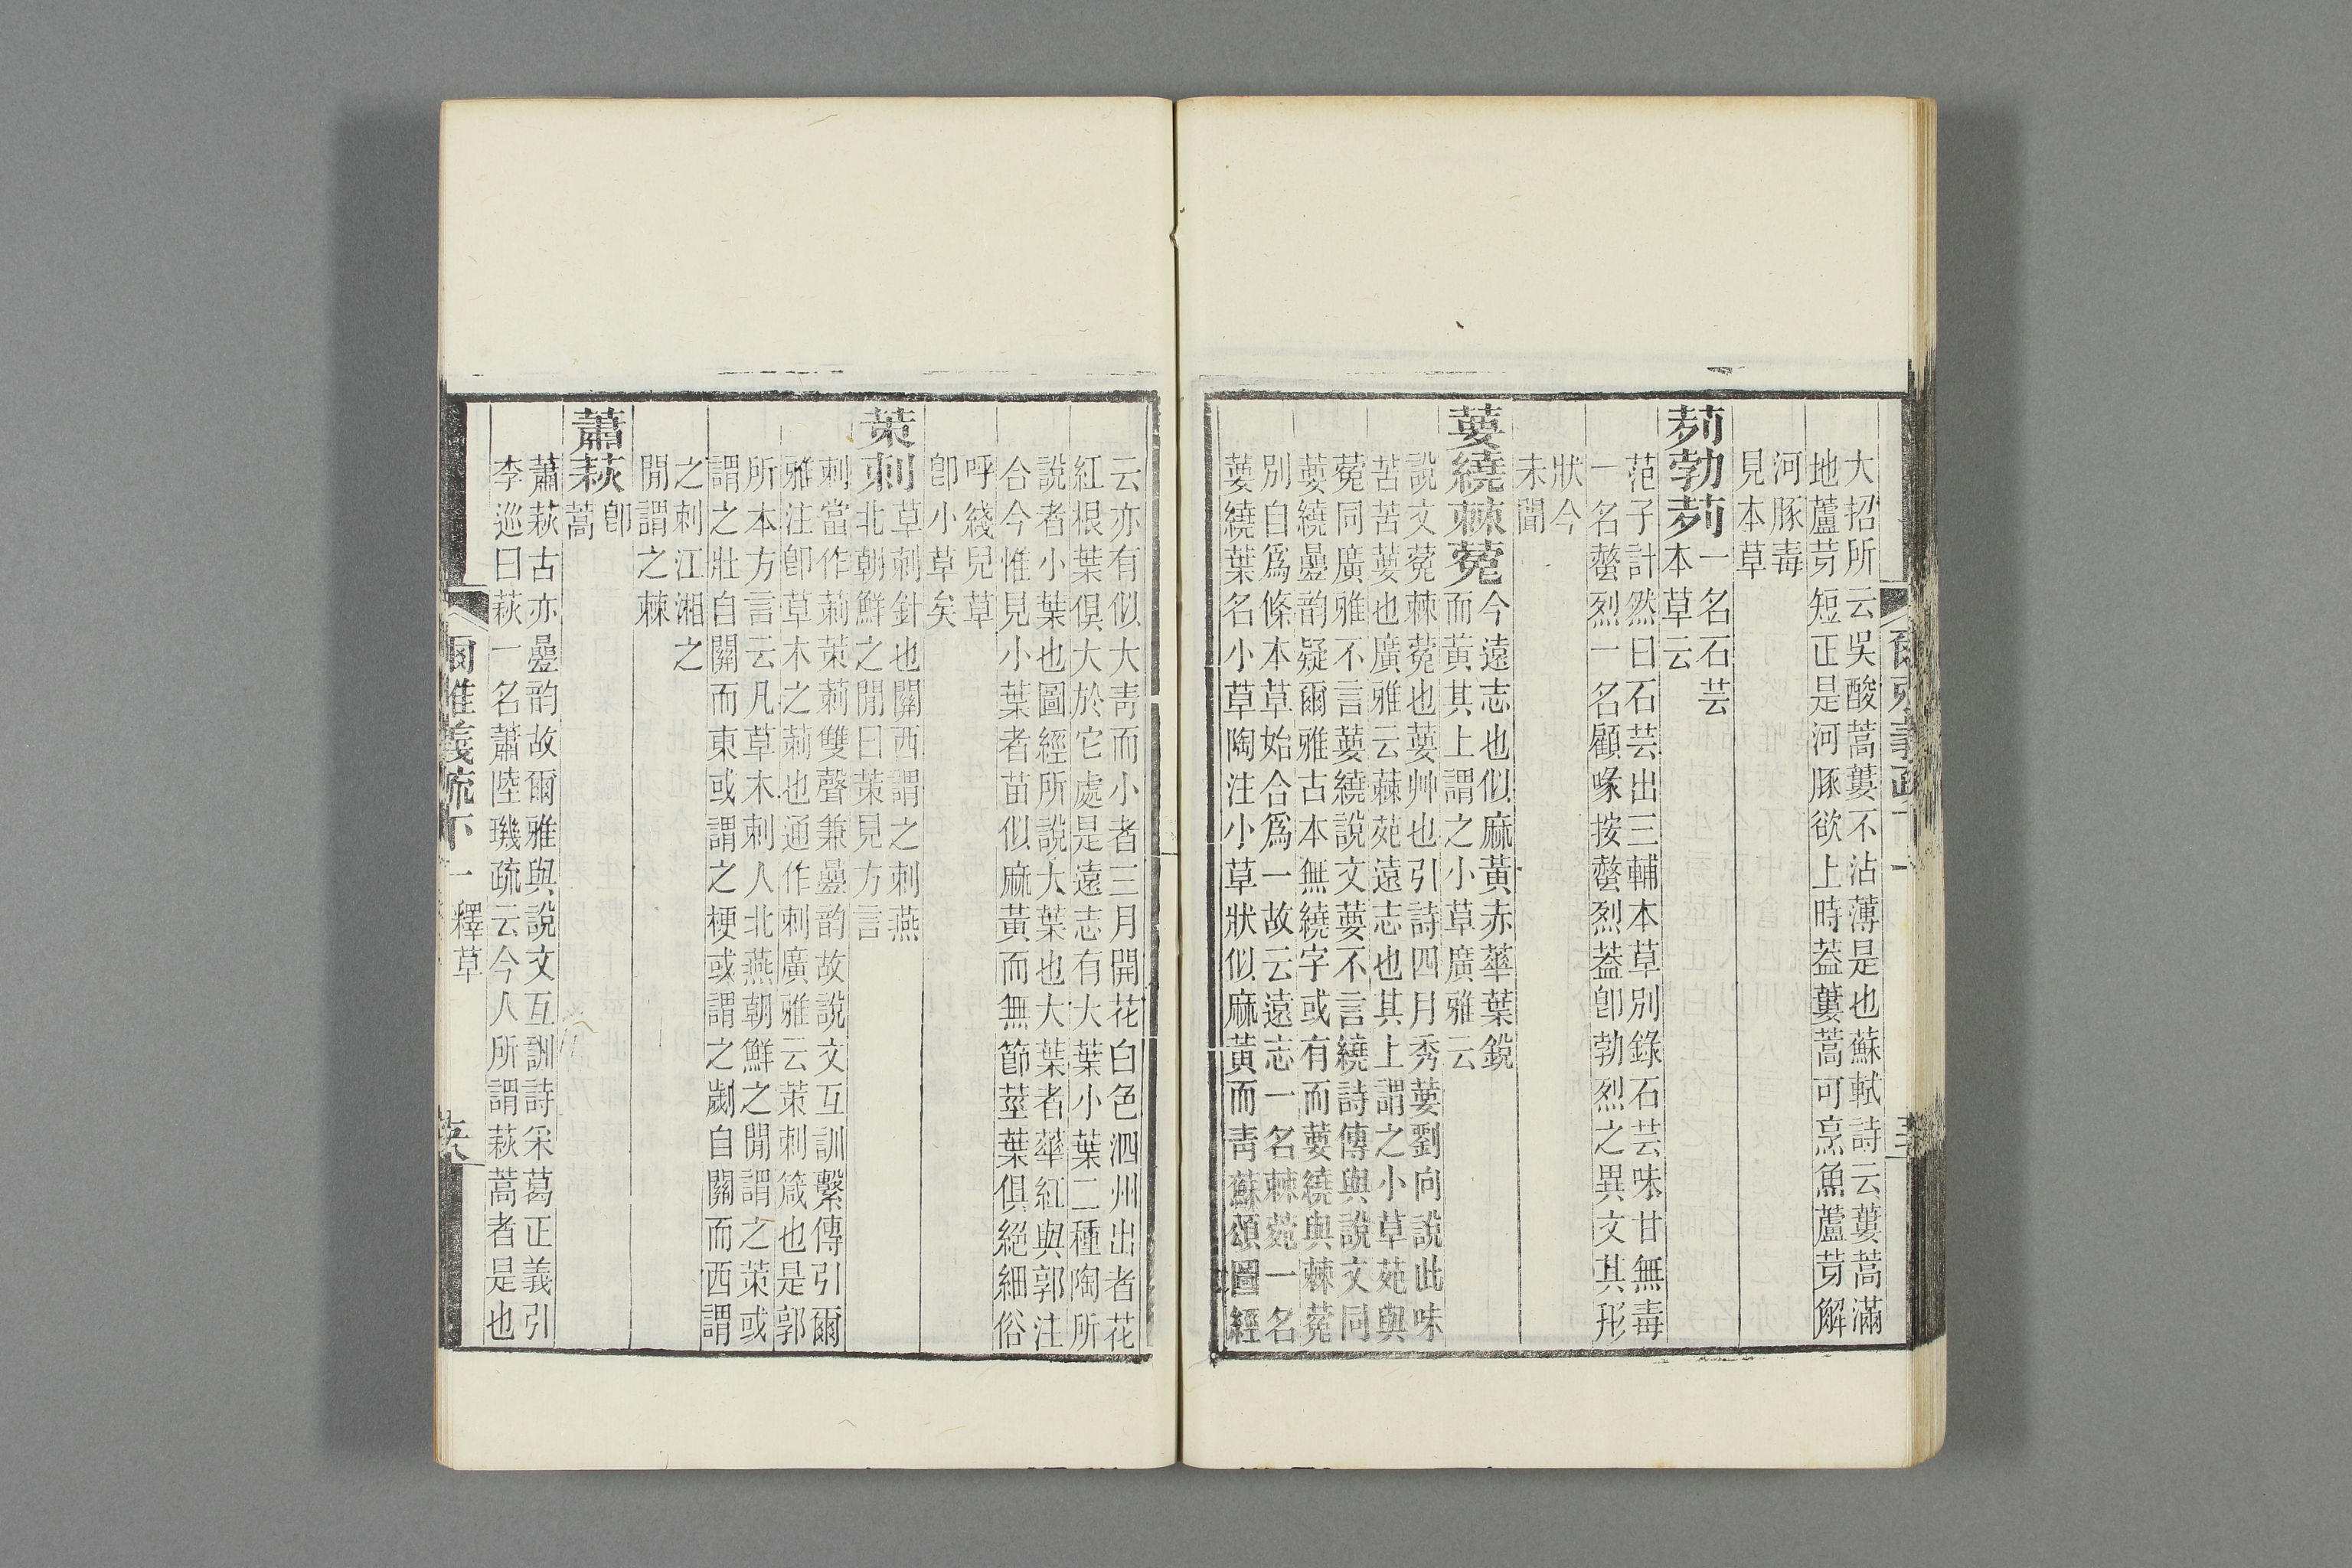 大招所云吳酸蒿蔞不沾薄是也蘇軾詩云蔞蒿滿
地蘆芽短正是河豚欲上時葢蔞蒿可烹魚蘆芽解
河豚毒
見本草
茢勃茢一名石芸
本草云
范子計然曰石芸出三輔本草別錄石芸味甘無毒
一名螫烈一名顧喙按螫烈葢卽勃烈之異文其形
狀今
未聞
葽繞蕀蒬今遠志也似麻黃赤蕐葉銳
而黃其上謂之小草廣雅云
說文蒬棘蒬也葽艸也引詩四月秀葽劉向說此味
苦苦葽也廣雅云蕀苑遠志也其上謂之小草苑與
蒬同廣雅不言葽繞說文葽不言繞詩傳與說文同
葽繞疊韵疑爾雅古本無繞字或有而葽繞與蕀蒬
別自爲條本草始合爲一故云遠志一名棘菀一名
葽繞葉名小草陶注小草狀似麻黃而靑蘇頌圖經
云亦有似大靑而小者三月開花白色泗州出者花
紅根葉俱大於它處是遠志有大葉小葉二種陶所
說者小葉也圖經所說大葉也大葉者蕐紅與郭注
合今惟見小葉者苗似麻黃而無節莖葉俱絕細俗
呼綫兒草
卽小草矣
茦刺草刺針也關西謂之刺燕
北朝鮮之閒曰茦見方言
刺當作莿茦莿雙聲兼疊韵故說文互訓繫傳引爾
雅注卽草木之莿也通作刺廣雅云茦刺箴也是郭
所本方言云凡草木刺人北燕朝鮮之閒謂之茦或
謂之壯自關而東或謂之梗或謂之劌自關而西謂
之刺江湘之
閒謂之棘
蕭萩卽
蒿
蕭萩古亦疊韵故爾雅與說文互訓詩采葛正義引
李巡曰萩一名蕭陸璣疏云今人所謂萩蒿者是也
爾雅義疏下一 釋草